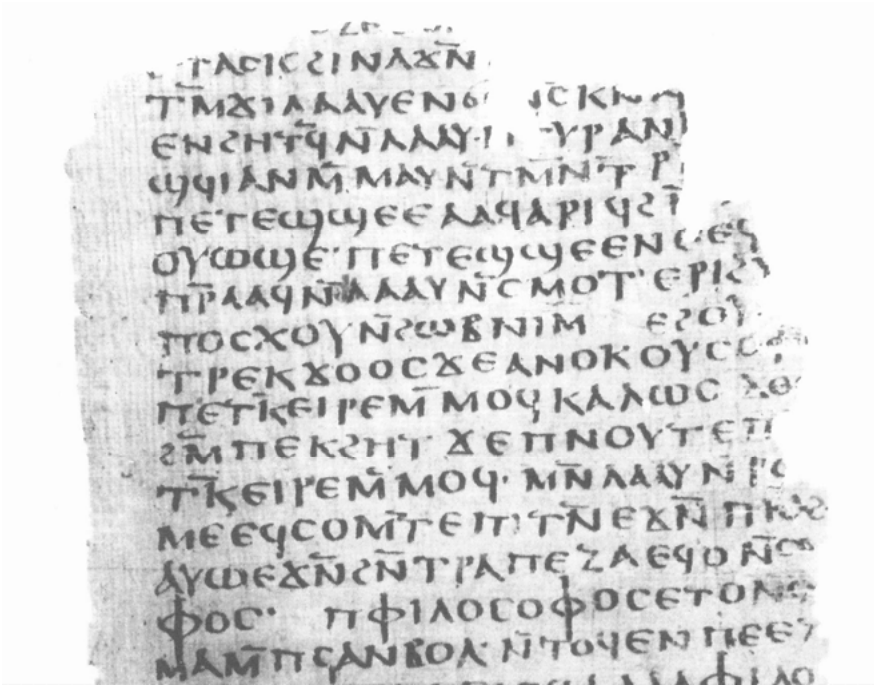 ⲧⲁⲉⲓⲥϩⲓⲛⲁϫⲛ̄
ⲧⲙ̄ϫⲓⲗⲁⲁⲩⲉⲛϭ ⲛ̄ⲥⲕ
ⲉⲛϩⲏⲧϥ̄ⲛ̄ⲗⲁⲁⲩ· ⲩⲣⲁⲛ
ϣϥⲓⲁⲛⲙ̄ⲙⲁⲩⲛ̄ⲧⲙⲛ̄ⲧⲣ
ⲡⲉⲧⲉϣϣⲉⲉⲁⲁϥⲁⲣⲓϥϩⲛ̄
ⲟⲩⲱϣⲉ· ⲡⲉⲧⲉϣϣⲉⲉⲛ ⲉⲉϥ
ⲡⲣ̄ⲁⲁϥⲛ̄ⲗⲁⲁⲩⲛ̄ⲥⲙⲟⲧ· ⲉⲣⲓϩⲩ
ⲡⲟⲥⲭⲟⲩⲛ̄ϩⲱⲃⲛⲓⲙ ⲉϩⲟⲩ
ⲧⲣⲉⲕϫⲟⲟⲥϫⲉⲁⲛⲟⲕⲟⲩⲥⲟ
ⲡⲉⲧⲕ̄ⲉⲓⲣⲉⲙ̄ⲙⲟϥⲕⲁⲗⲱⲥ ϫⲟ
ϩⲙ̄ⲡⲉⲕϩⲏⲧ ϫⲉⲡⲛⲟⲩⲧⲉⲡ
ⲧⲕ̄ⲉⲓⲣⲉⲙ̄ⲙⲟϥ· ⲙⲛ̄ⲗⲁⲁⲩⲛ̄ⲣⲱ
ⲙⲉⲉϥⲥⲟⲙⲧⲉⲡⲓⲧⲛ̄ⲉϫⲛ̄ⲡⲕⲁϩ
ⲁⲩⲱⲉϫⲛ̄ϩⲛ̄ⲧⲣⲁⲡⲉⲍⲁⲉϥⲟⲛ̄ⲥⲟ
ⲫⲟⲥ· ⲡⲫⲓⲗⲟⲥⲟⲫⲟⲥⲉⲧⲟⲛ̄ⲥ
ⲙⲁⲙ̄ⲡⲥⲁⲛⲃⲟⲗ· ⲛ̄ⲧⲟϥⲉⲛⲡⲉⲉⲧ